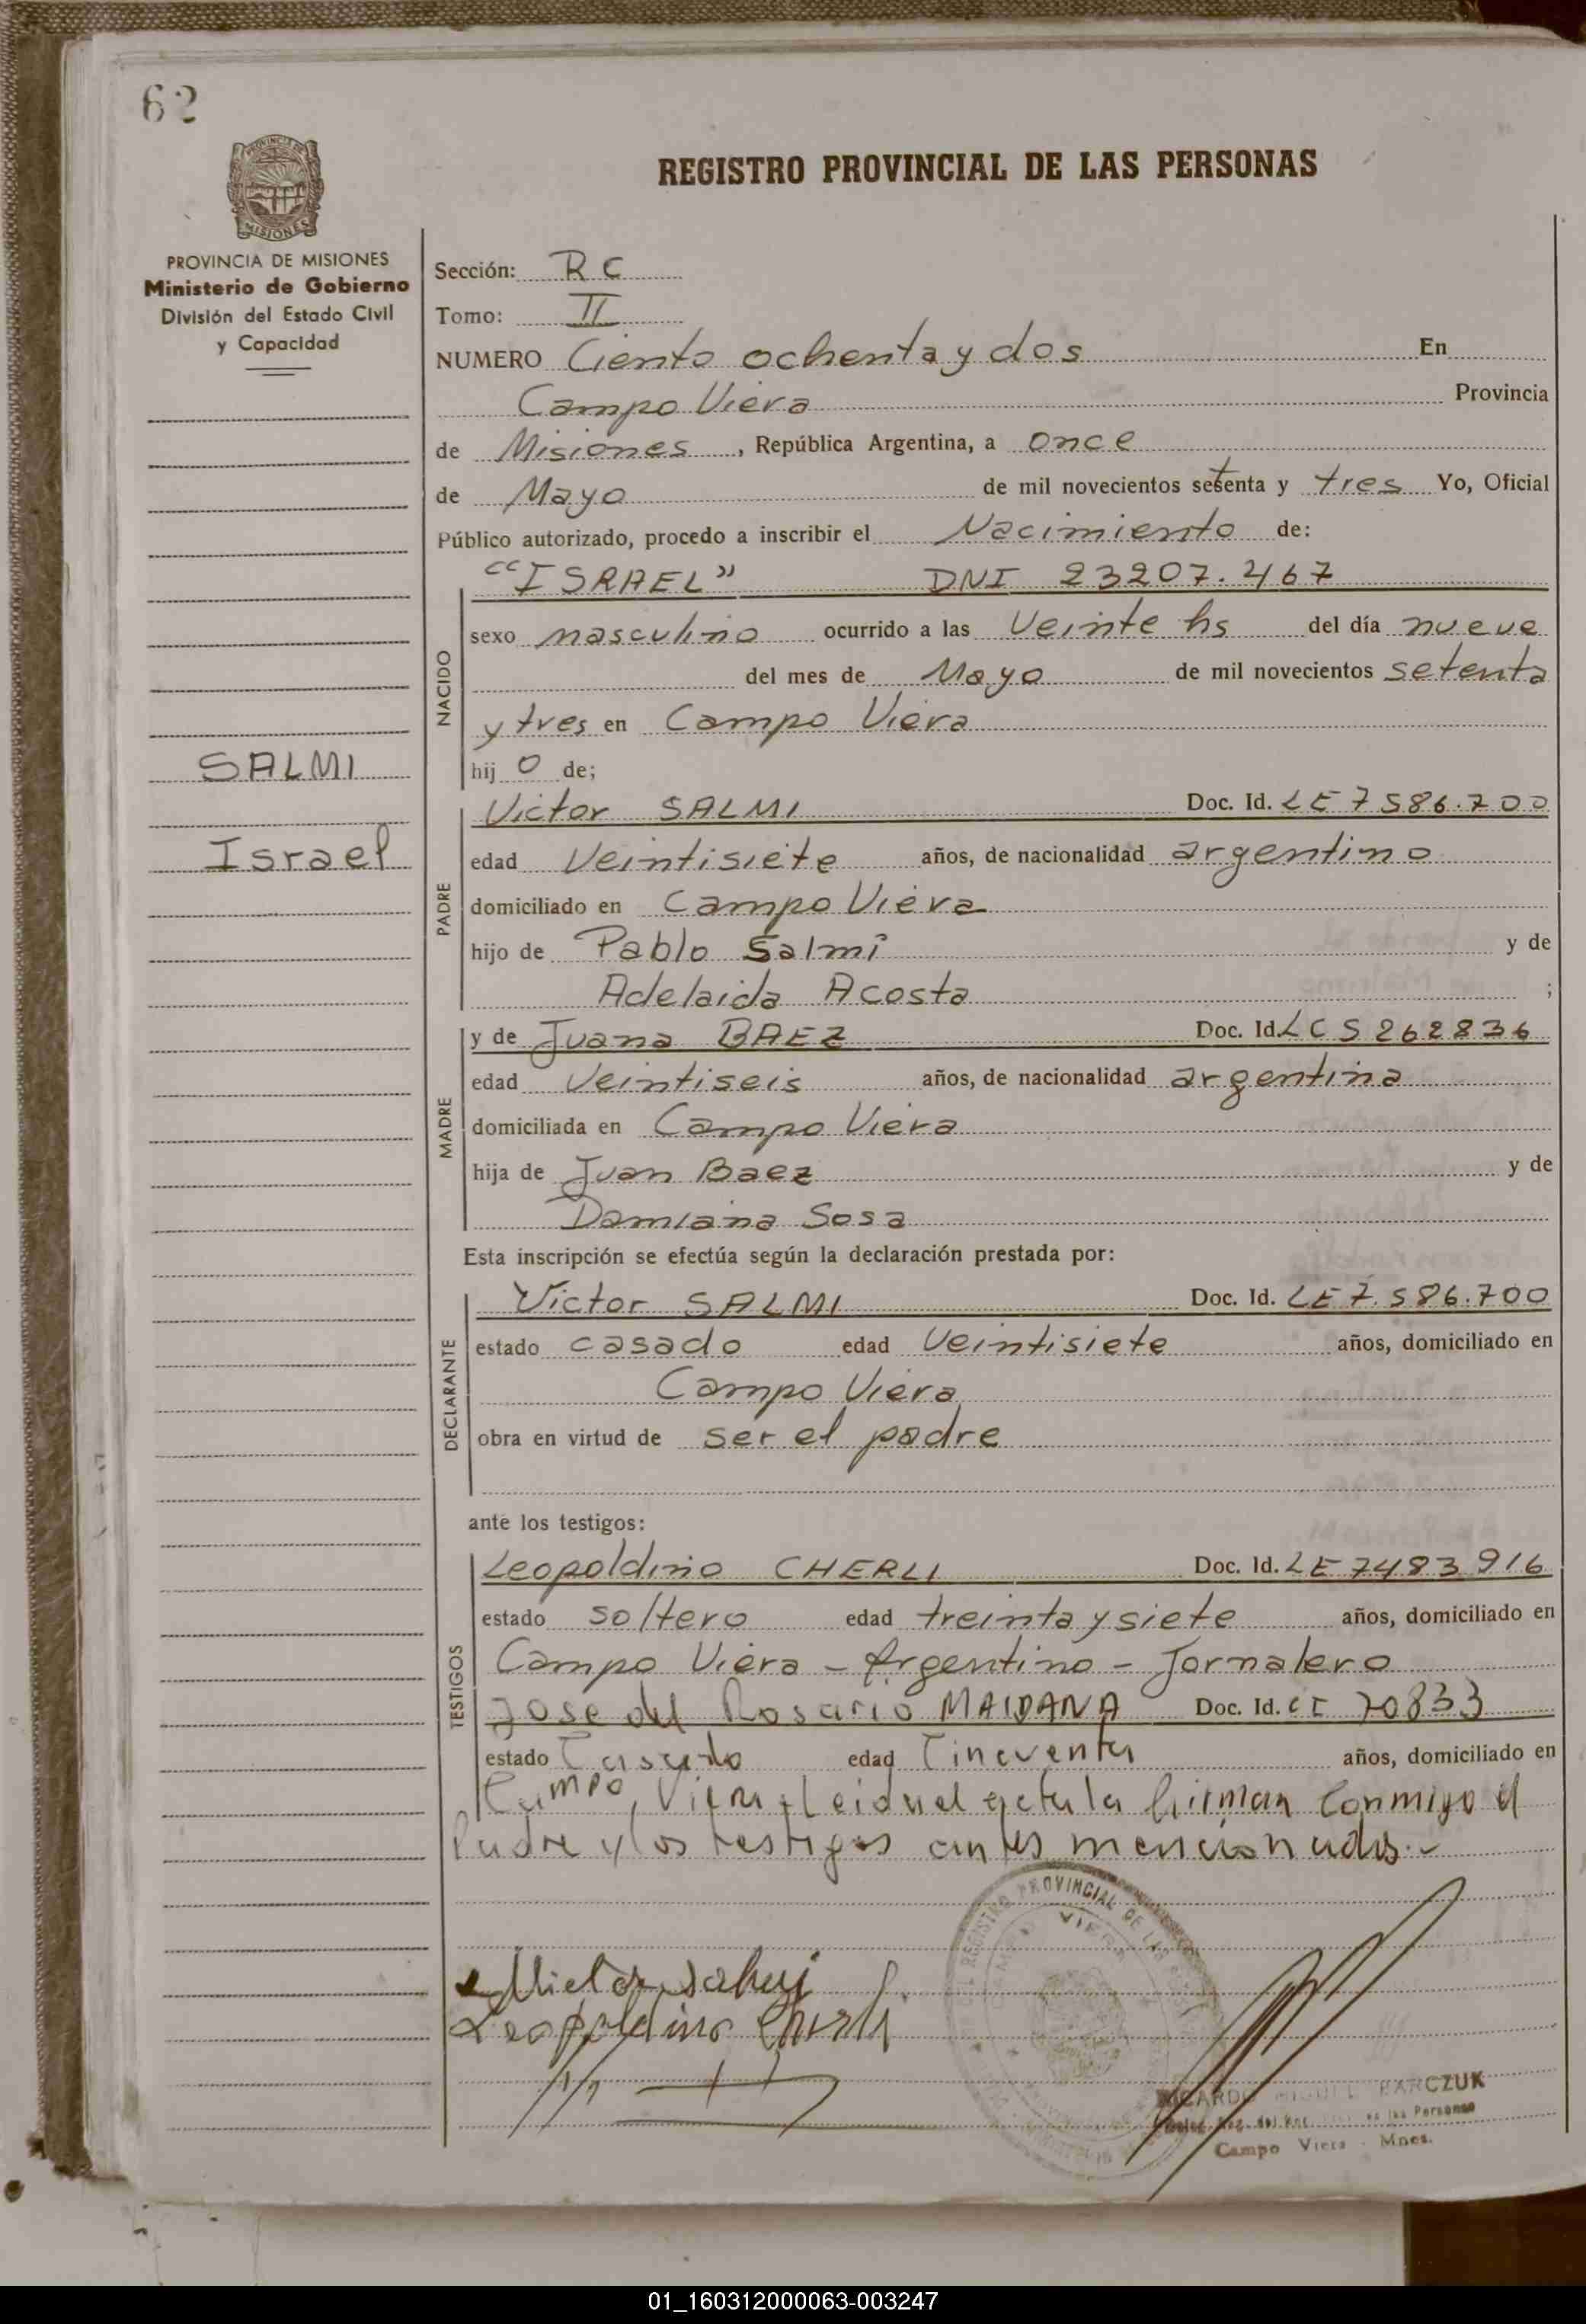 62
PROVINCIA DE
MISIONES
PROVINCIA DE MISIONES
Ministerio de Gobierno
División del Estado Civil
y Capacidad
SALMI
Israel
REGISTRO PROVINCIAL DE LAS PERSONAS
Sección: R C
Tomo: II
NUMERO Ciento ochenta y dos En
Campo Viera Provincia
de Misiones, República Argentina, a once
de Mayo de mil novecientos setenta y tres Yo, Oficial
Público autorizado, procedo a inscribir el Nacimiento de:
NACIDO
"ISRAEL" DNI 23207.467
sexo masculino ocurrido a las Veinte hs del día nueve
del mes de Mayo de mil novecientos setenta
y tres en Campo Viera
hij o de;
PADRE
Victor SALMI Doc. Id. LE 7586.700
edad Veintisiete años, de nacionalidad argentino
domiciliado en Campo Viera
hijo de Pablo Salmi y de
Adelaida Acosta ;
MADRE
y de Juana BAEZ Doc. Id. LC 5262836
edad Veintiseis años, de nacionalidad argentina
domiciliada en Campo Viera
hija de Juan Baez y de
Damiana Sosa
Esta inscripción se efectúa según la declaración prestada por:
DECLARANTE
Victor SALMI Doc. Id. LE 7.586.700
estado casado edad Veintisiete años, domiciliado en
Campo Viera
obra en virtud de ser el padre
ante los testigos:
TESTIGOS
Leopoldino CHERLI Doc. Id. LE 7483916
estado soltero edad treinta y siete años, domiciliado en
Campo Viera - Argentino - Jornalero
Jose del Rosario MAIDANA Doc. Id. CI 70833
estado Casado edad Cincuenta años, domiciliado en
Campo Viera, Leida el acta la firman Conmigo el
Padre y los testigos antes mencionados.-
REGISTRO PROVINCIAL DE LAS
CAMPO VIERA
Victor Salmi
Leopoldino Cherli
RICARDO MIGUEL
Campo Viera - Mnes.
01_160312000063-003247